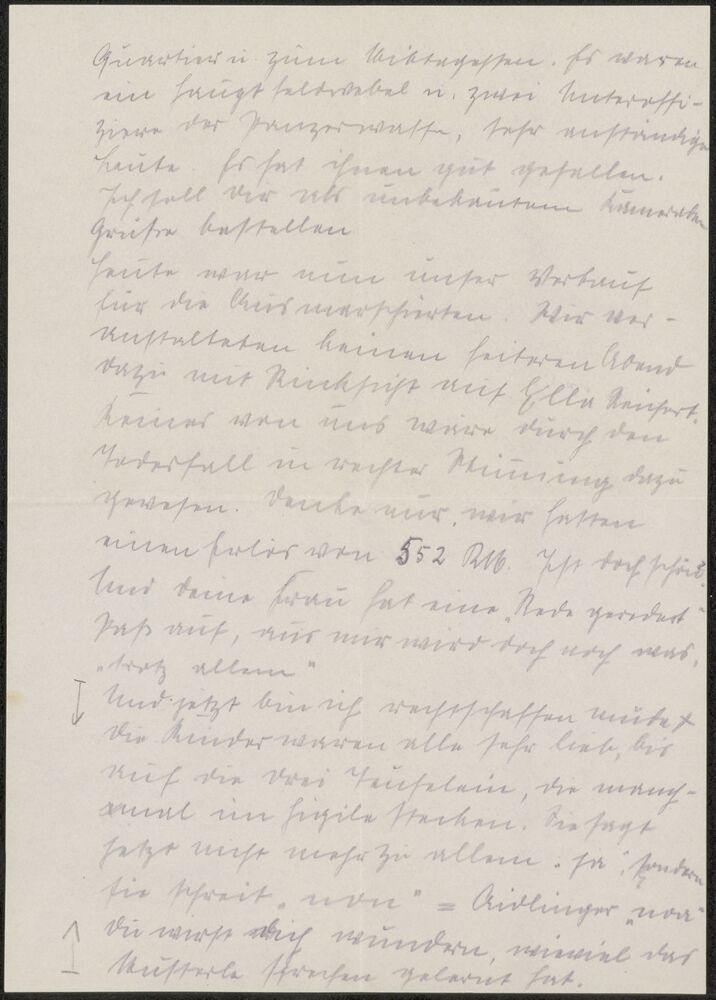 Quartier u. zum Mittagessen. Es waren
ein Hauptfeldwebel u. zwei Unteroffi-
ziere der Panzerwaffe, sehr anständige
Leute. Es hat ihnen gut gefallen.
Ich soll Dir als unbekanntem Kameraden
Grüße bestellen
Heute war nun unser Verkauf
für die Ausmarschierten. Wir ver-
anstalteten keinen heiteren Abend
dazu mit Rücksicht auf Ella
Keines von uns wäre durch den
Todesfall in rechter Stimmung dazu
gewesen. Denke nur, wir hatten
einen Erlös von 552 RM. Ist doch schön
Und deine Frau hat eine „Rede geredet"
Paß auf, aus mir wird doch noch was,
„trotz allem"
Und jetzt bin ich rechtschaffen müde
Die Kinder waren alle sehr lieb, bis
auf die drei Teufelein, die manch-
mal im stecken. Sie sagt
jetzt nicht mehr zu allem „ja", sondern
sie schreit „non" = Aidlinger „noi"
Du wirst dich wundern, wieviel das
sprechen gelernt hat.